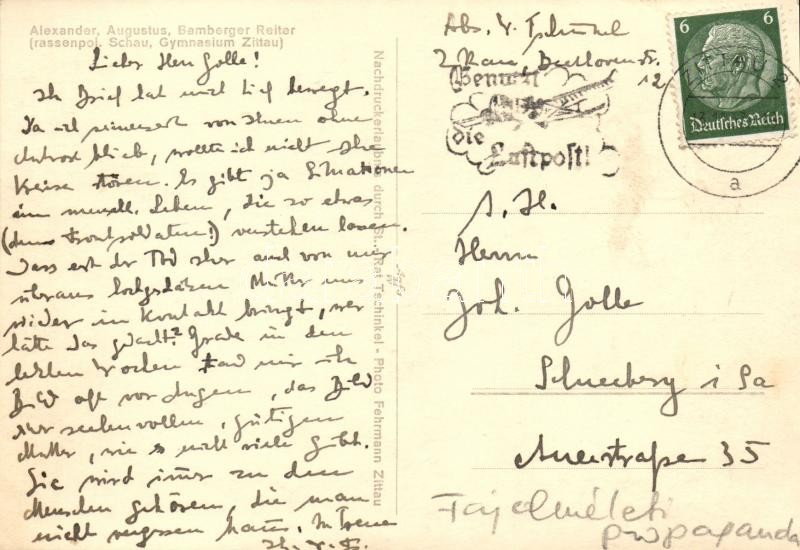 Alexander, Augustus, Bamberger Reiter
(rassenpol. Schau, Gymnasium Zittau)
Lieber Herr Jolle!
Ihr Brief hat mich tief bewegt.
Da ich seinerzeit von Ihnen ohne
Antwort blieb, wollte ich nicht Ihre
Kreise stören. Es gibt ja Situationen
im menschl. Leben, die so etwas
(dem Frontsoldaten!) verstehen lassen.
Dass erst der Tod Ihrer auch von mir
überaus hochgeschätzten Mutter uns
wieder in Kontakt bringt, wer
hätte das gedacht? Grade in den
letzten Wochen stand mir ihr
Bild oft vor Augen, das Bild
einer seelenvollen, gütigen
Mutter, wie es nicht viele gibt.
Sie wird immer zu den
Menschen gehören, die man
nicht vergessen kann. In Treue
Ihr
Nachdruckerlaubnis durch St. Rat Tschinkel - Photo Fehrmann Zittau
Agfa
Abs.
Zittau, Beethovenstr.
12
Benutzt
die
Luftpost!
ZITTAU 2
a
6 6
Deutsches Reich
S. H.
Herrn
Joh. Jolle
Schneeberg i Sa
Auerstraße 35
Fajelméleti
propaganda